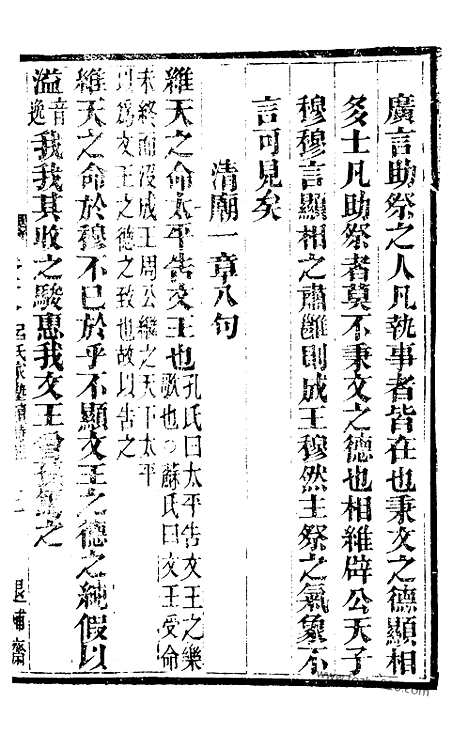 廣言助祭之人凡執事者皆在也秉文之德顯相
多士凡助祭者莫不秉文之德也相維辟公天子
穆穆言顯相之肅雝則成王穆然主祭之氣象不
言可見矣
清廟一章八句
維天之命太平告文王也孔氏曰太平告文王之樂
歌也○蘇氏曰文王受命
未終而沒成王周公繼之天下太平
以爲文王之德之致也故以告之
維天之命於穆不已於乎不顯文王之德之純假以
溢音逸我我其收之駿惠我文王曾孫篤之
呂氏家塾讀詩記
退補齋